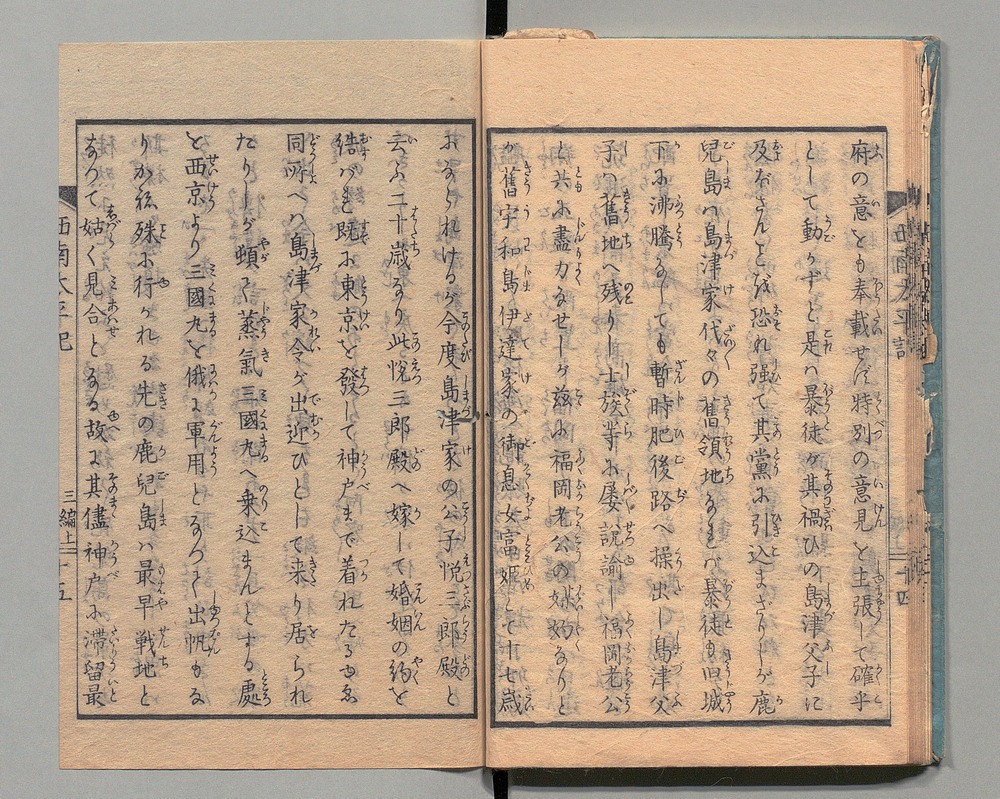 府の意とも奉載せず特別の意見を主張して確乎
として動かずと是ハ暴徒ガ其禍ひの島津父子に
及バさんとを恐れ强て其黨に引込まざりしガ鹿
兒島ハ島津家代々の舊領地なれバ暴徒も旧城
下に沸騰なしても暫時肥後路へ操出し島津父
子ハ舊地へ残りし士族等に屡説諭し福岡老公
と共に盡力なせしガ茲に福岡老公の妹妫なりと
か舊宇和島伊達家の御息女富姫とて十七歳
になられけるガ今度島津家の公子悦三郎殿と
云ふ二十歳なり此悦三郎殿へ嫁して婚姻の約を
結バれ既に東京を發して神戸まで着れたるゆゑ
同所へハ島津家令ガ出迎ひとして来り居られ
たりしガ頓て蒸氣三國丸へ乗込まんとする處
を西京より三國丸を俄よ軍用となつて出帆もな
りか祢殊に行がれる先の鹿兒島ハ最早戦地と
なつて姑く見合となる故よ其儘神戸に滞留最
西南太平記
三編上
十五